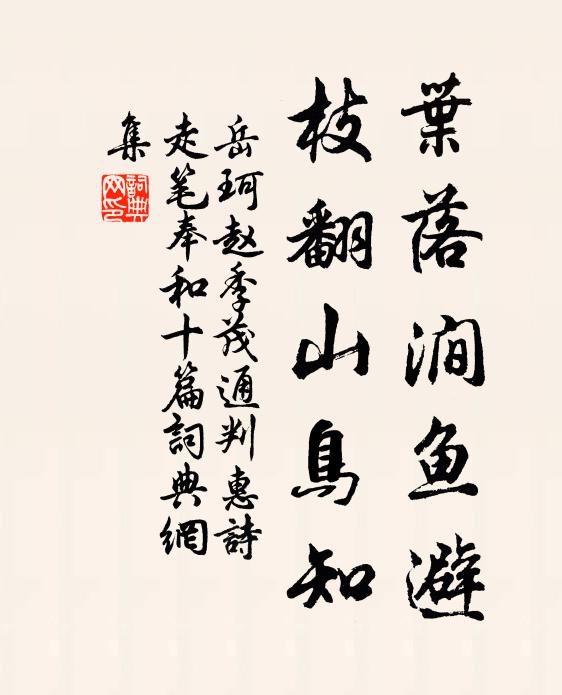 葉落澗鱼避
枝翻山鳥知
岳珂赵季茂通判惠詩
走笔奉和十篇詞典網
集
詞典网印